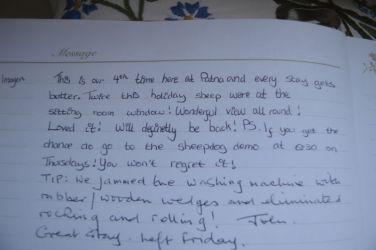 Message
This is our 4th time here at Patna and every stay gets
better. Twice this holiday sheep were at the
sitting room window! Wonderful view all round!
Loved it! Will definetly be back! PS. If you get the
chance do go to the sheepdog demo at on
Thursdays! You won't regret it!
TIP: We jammed the washing machine with
rubber/wooden wedges and eliminated
rocking and rolling! John.
Great stay. Left Friday.